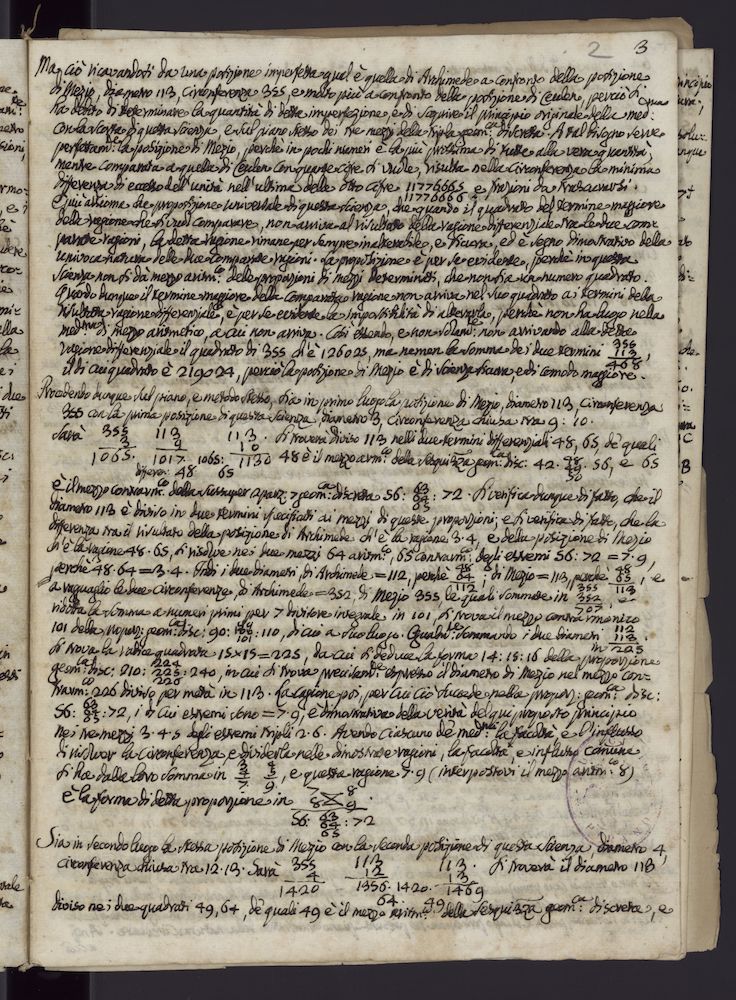 2 3
Ma, ciò ricavandosi da una posizione imperfetta qual è quella di Archimede a confronto della posizione
di Mezio, diametro 113, circonferenza 355, e molto più a confronto della posizione di Ceulen, perciò si
ha debito di determinare la quantità di detta imperfezione, e di scoprire il principio originale della med.ma
con la scorta di questa scienza, e sul piano stesso dei tre mezzi della tripla geom.ca discreta. A tal bisogno serve
perfettam.te la posizione di Mezio, perché in pochi numeri è la più prossima di tutte alla vera quantità,
mentre comparata a quella di Ceulen con quante cifre si vuole, risulta nella circonferenza la minima
differenza di eccesso dell'unità nell'ultima delle otto cifre 11776665 e frazioni da tralasciarsi.
11776666
È qui assioma, che proposizione universale di questa scienza, che quando il quadrato del termine maggiore
delle ragioni che si vuol comparare, non arriva al risultato della ragione differenziale tra le due com
parate ragioni, la detta ragione rimane per sempre inalterabile, e sicura, ed è segno dimostrativo della
univoca natura delle due comparate ragioni. La proposizione è per se evidente, perché in questa
scienza non si dà mezzo aritm.co delle proporzioni di mezzi determinati, che non sia un numero quadrato.
Quando dunque il termine maggiore della comparata ragione non arriva nel suo quadrato a i termini della
risultata ragione differenziale, è per se evidente la impossibilità di alterarla, perché non ha luogo nella
med.ma mezzo aritmetico, a cui non arriva. Così essendo, e non solam.te non arrivando alla detta
ragione differenziale il quadrato di 355 ch'è 126025, ma nemen la somma de i due termini 355
113
468
il di cui quadrato è 219024, perciò la posizione di Mezio è di scienza sicura, e di comodo maggiore.
Procedendo dunque sul piano, e metodo stesso, sia in primo luogo la posizione di Mezio, diametro 113, circonferenza
355 con la prima posizione di questa scienza, diametro 3, circonferenza chiusa tra 9 : 10.
Sarà 355 113 113. Si troverà diviso 113 nelli due termini differenziali 48, 65, de' quali
3 9 10
1065. 1017. 1065. 1130 48 è il mezzo arm.co della sesquizza geom.ca disc: 42. 48 49 50. 56, e 65
differen: 48 65
è il mezzo contrarm.co della superpar: geom.ca discreta 56: 63 64 65 : 72. Si verifica dunque di fatto, che il
diametro 113 è diviso in due termini specificati ai mezzi di queste proporzioni; e si verifica di fatto, che la
differenza tra il risultato della posizione di Archimede ch'è la ragione 3.4, e della posizione di Mezio
ch'è la ragione 48.65, si risolve ne i due mezzi 64 aritm.co, 65 contrarm.co degli estremi 56:72 = 7.9,
perché 48.64 = 3.4. Indi i due diametri, di Archimede = 112, perché 48 64 112; di Mezio = 113, perché 48 65 113; e
a ragguaglio le due circonferenze, di Archimede = 352, di Mezio 355, le quali sommate in 355 352 707, e
ridotta la somma a numeri primi per 7 divisore integrale in 101, si trova il mezzo contrarmonico
101 della propor: geom.ca disc: 90: 99 100 101 : 110, di cui a suo luogo. Egualm.te sommando i due diametri 112
113
in 225
si trova la radice quadrata 15×15 = 225, da cui si deduce la forma 14:15:16 della proporzione
geom.ca disc: 210: 224 225 226 : 240, in cui si trova precisam.te espresso il diametro di Mezio nel mezzo con
trarm.co 226 diviso per metà in 113. La ragione poi, per cui ciò succede nella propor: geom.ca disc:
56: 63 64 65 : 72, i di cui estremi sono = 7.9, è dimostrativa della verità del qui proposto principio
ne i tre mezzi 3.4.5 degli estremi tripli 2.6. Avendo ciascuno de' med.mi la facoltà, e l'influsso
di risolver la circonferenza, e dividerla nelle dimostrate ragioni, la facoltà, e influsso comune
si ha dalla loro somma in 3 4 7 4 5 9, e questa ragione 7.9 (interpostovi il mezzo aritm.co 8)
è la forma di detta proporzione in 7 8 8 9
56: 63 64 65 : 72
Sia in secondo luogo la stessa posizione di Mezio con la seconda posizione di questa scienza, diametro 4,
circonferenza chiusa tra 12.13. Sarà 355 113 113. Si troverà il diametro 113
4 12 13
1420 1356. 1420. 1469
64. 49
diviso ne i due quadrati 49, 64, de' quali 49 è il mezzo aritm.co della sesquizza geom.ca discreta, e